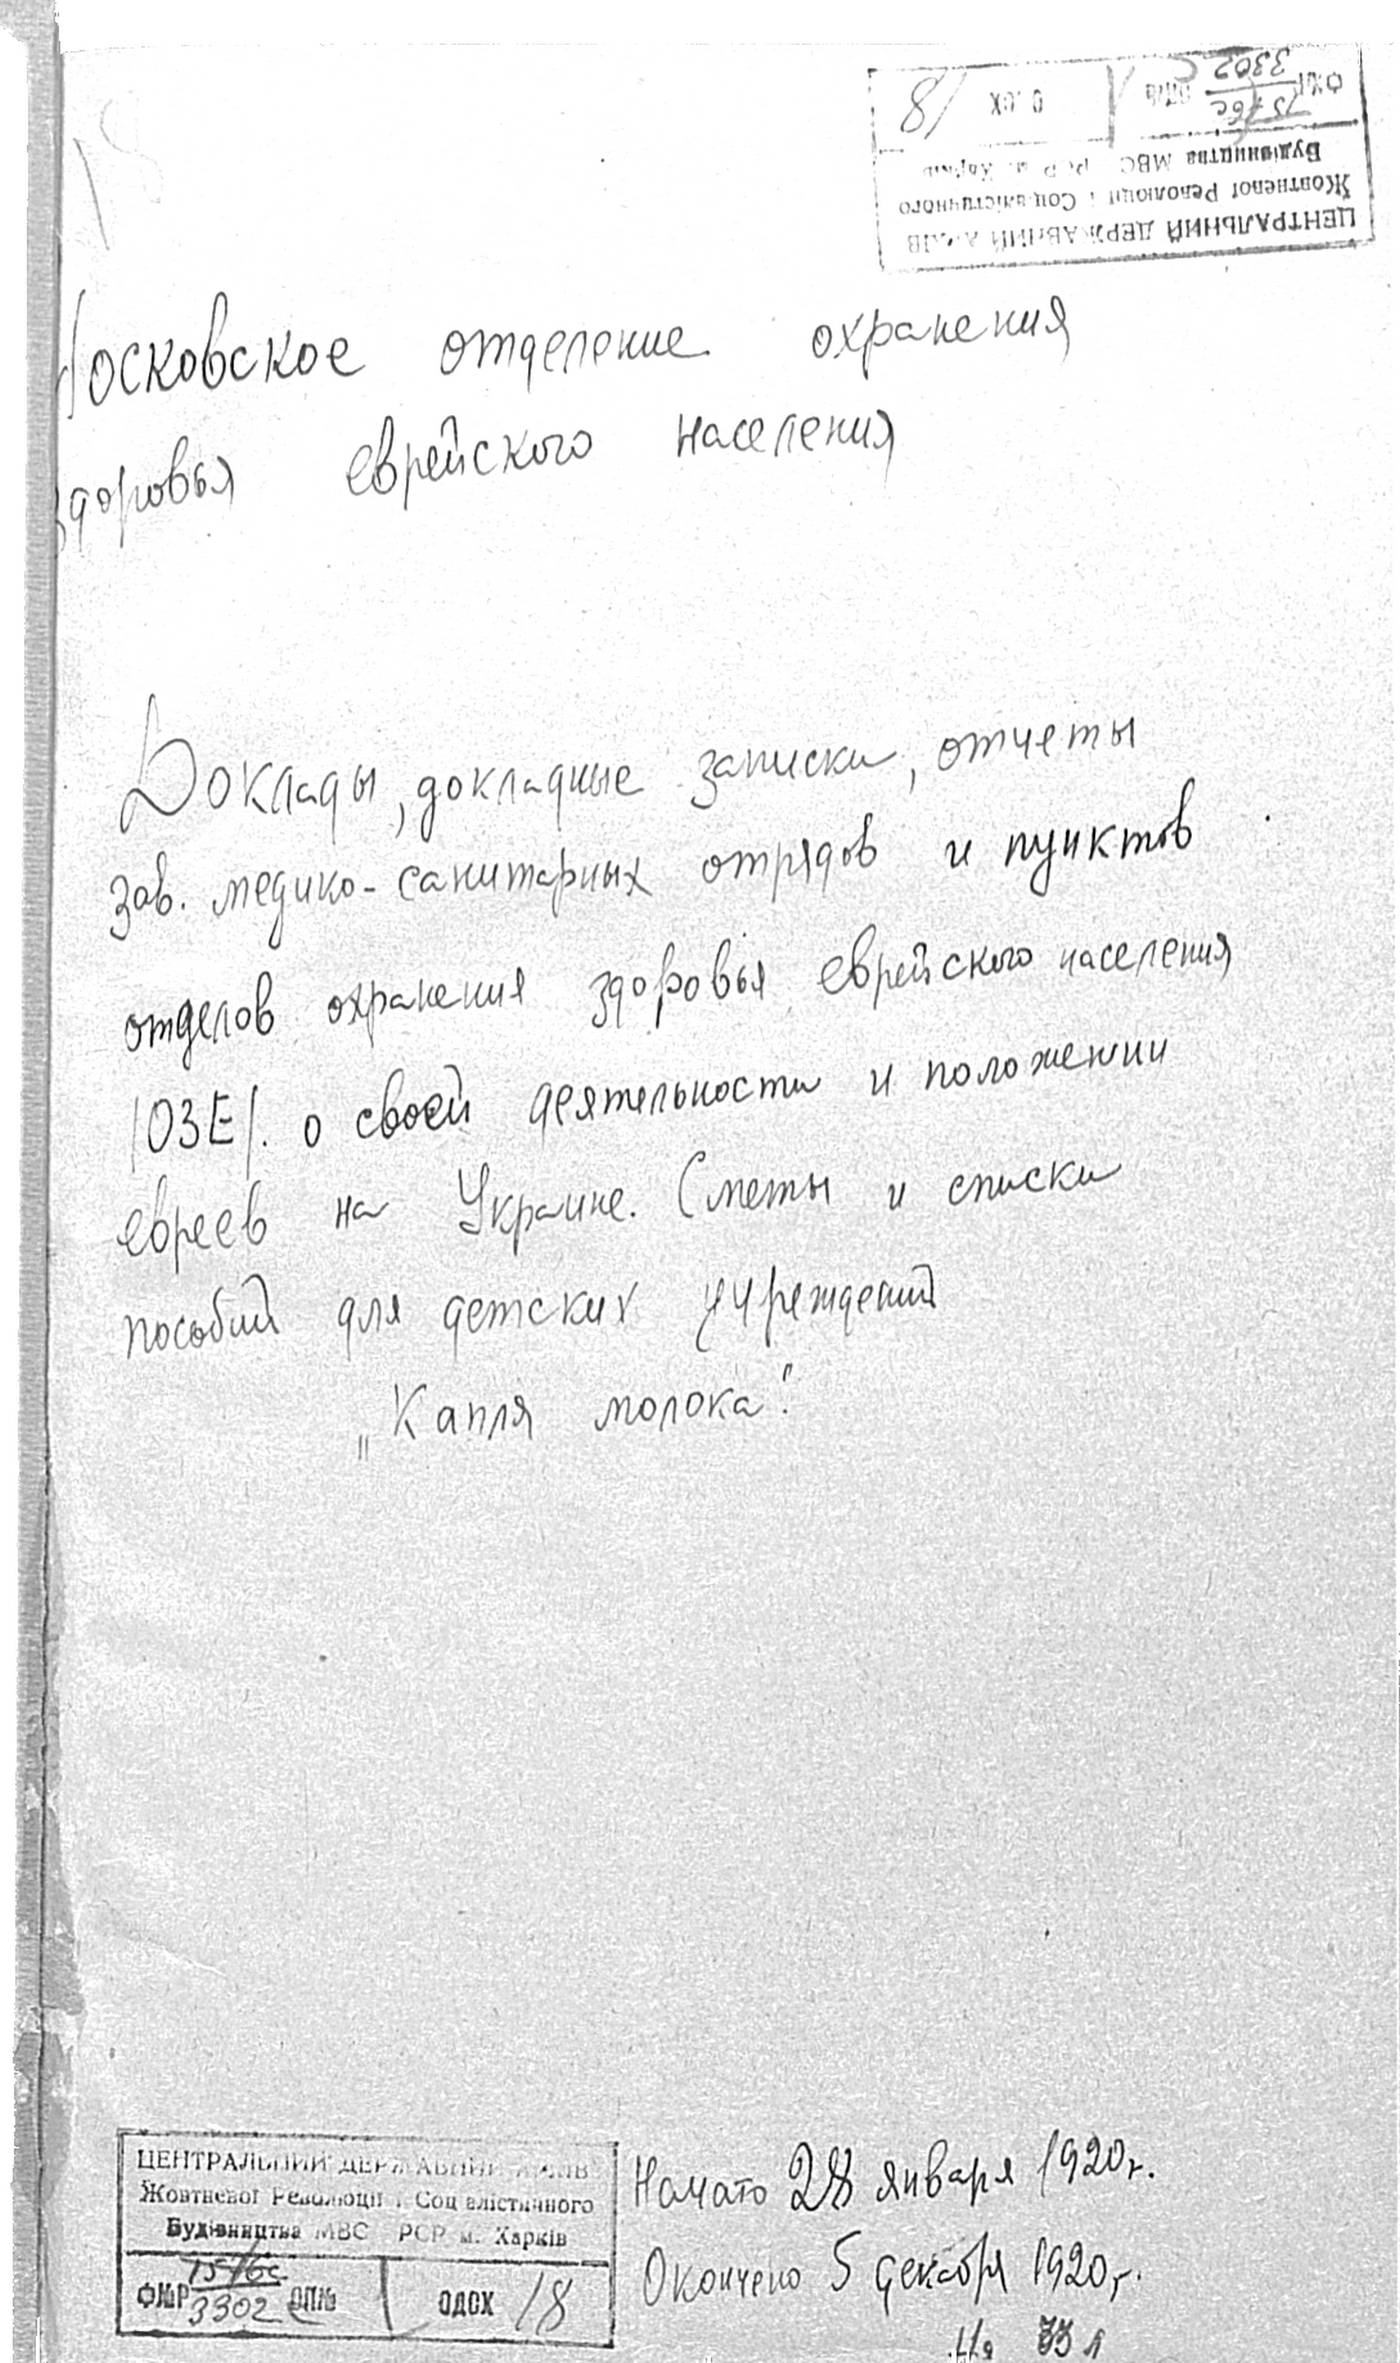 ЦЕНТРАЛЬНИЙ ДЕРЖАВНИЙ АРХІВ
Жовтневої Революції і Соціалістичного
Будівництва МВС РСР м. Харків
3302
Московское отделение охранения
здоровья еврейского населения
Доклады, докладные записки, отчеты
зав. медико-санитарных отрядов и пунктов
отделов охранения здоровья еврейского населения
/ОЗЕ/. о своей деятельности и положении
евреев на Украине. Сметы и списки
пособий для детских учреждений
„Капля молока".
ЦЕНТРАЛЬНИЙ ДЕРЖАВНИЙ АРХІВ
Жовтневої Революції і Соціалістичного
Будівництва МВС РСР м. Харків
3302 ОДОХ 18
Начато 28 января 1920 г.
Окончено 5 декабря 1920 г.
На л